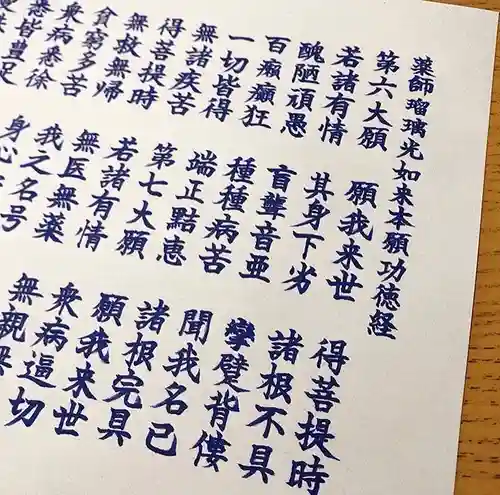 薬師瑠璃光如来本願功徳経
第六大願 願我来世 得菩提時
若諸有情 其身下劣 諸根不具
醜陋頑愚 盲聾音亜 攣躄背僂
百癩癲狂 種種病苦 聞我名己
一切皆得 端正點恵 諸根完具
無諸疾苦 第七大願 願我来世
得菩提時 若諸有情 衆病逼切
無救無帰 無医無薬 無親
貧窮多苦 我之名号
衆病悉徐 身心
悉皆豊足